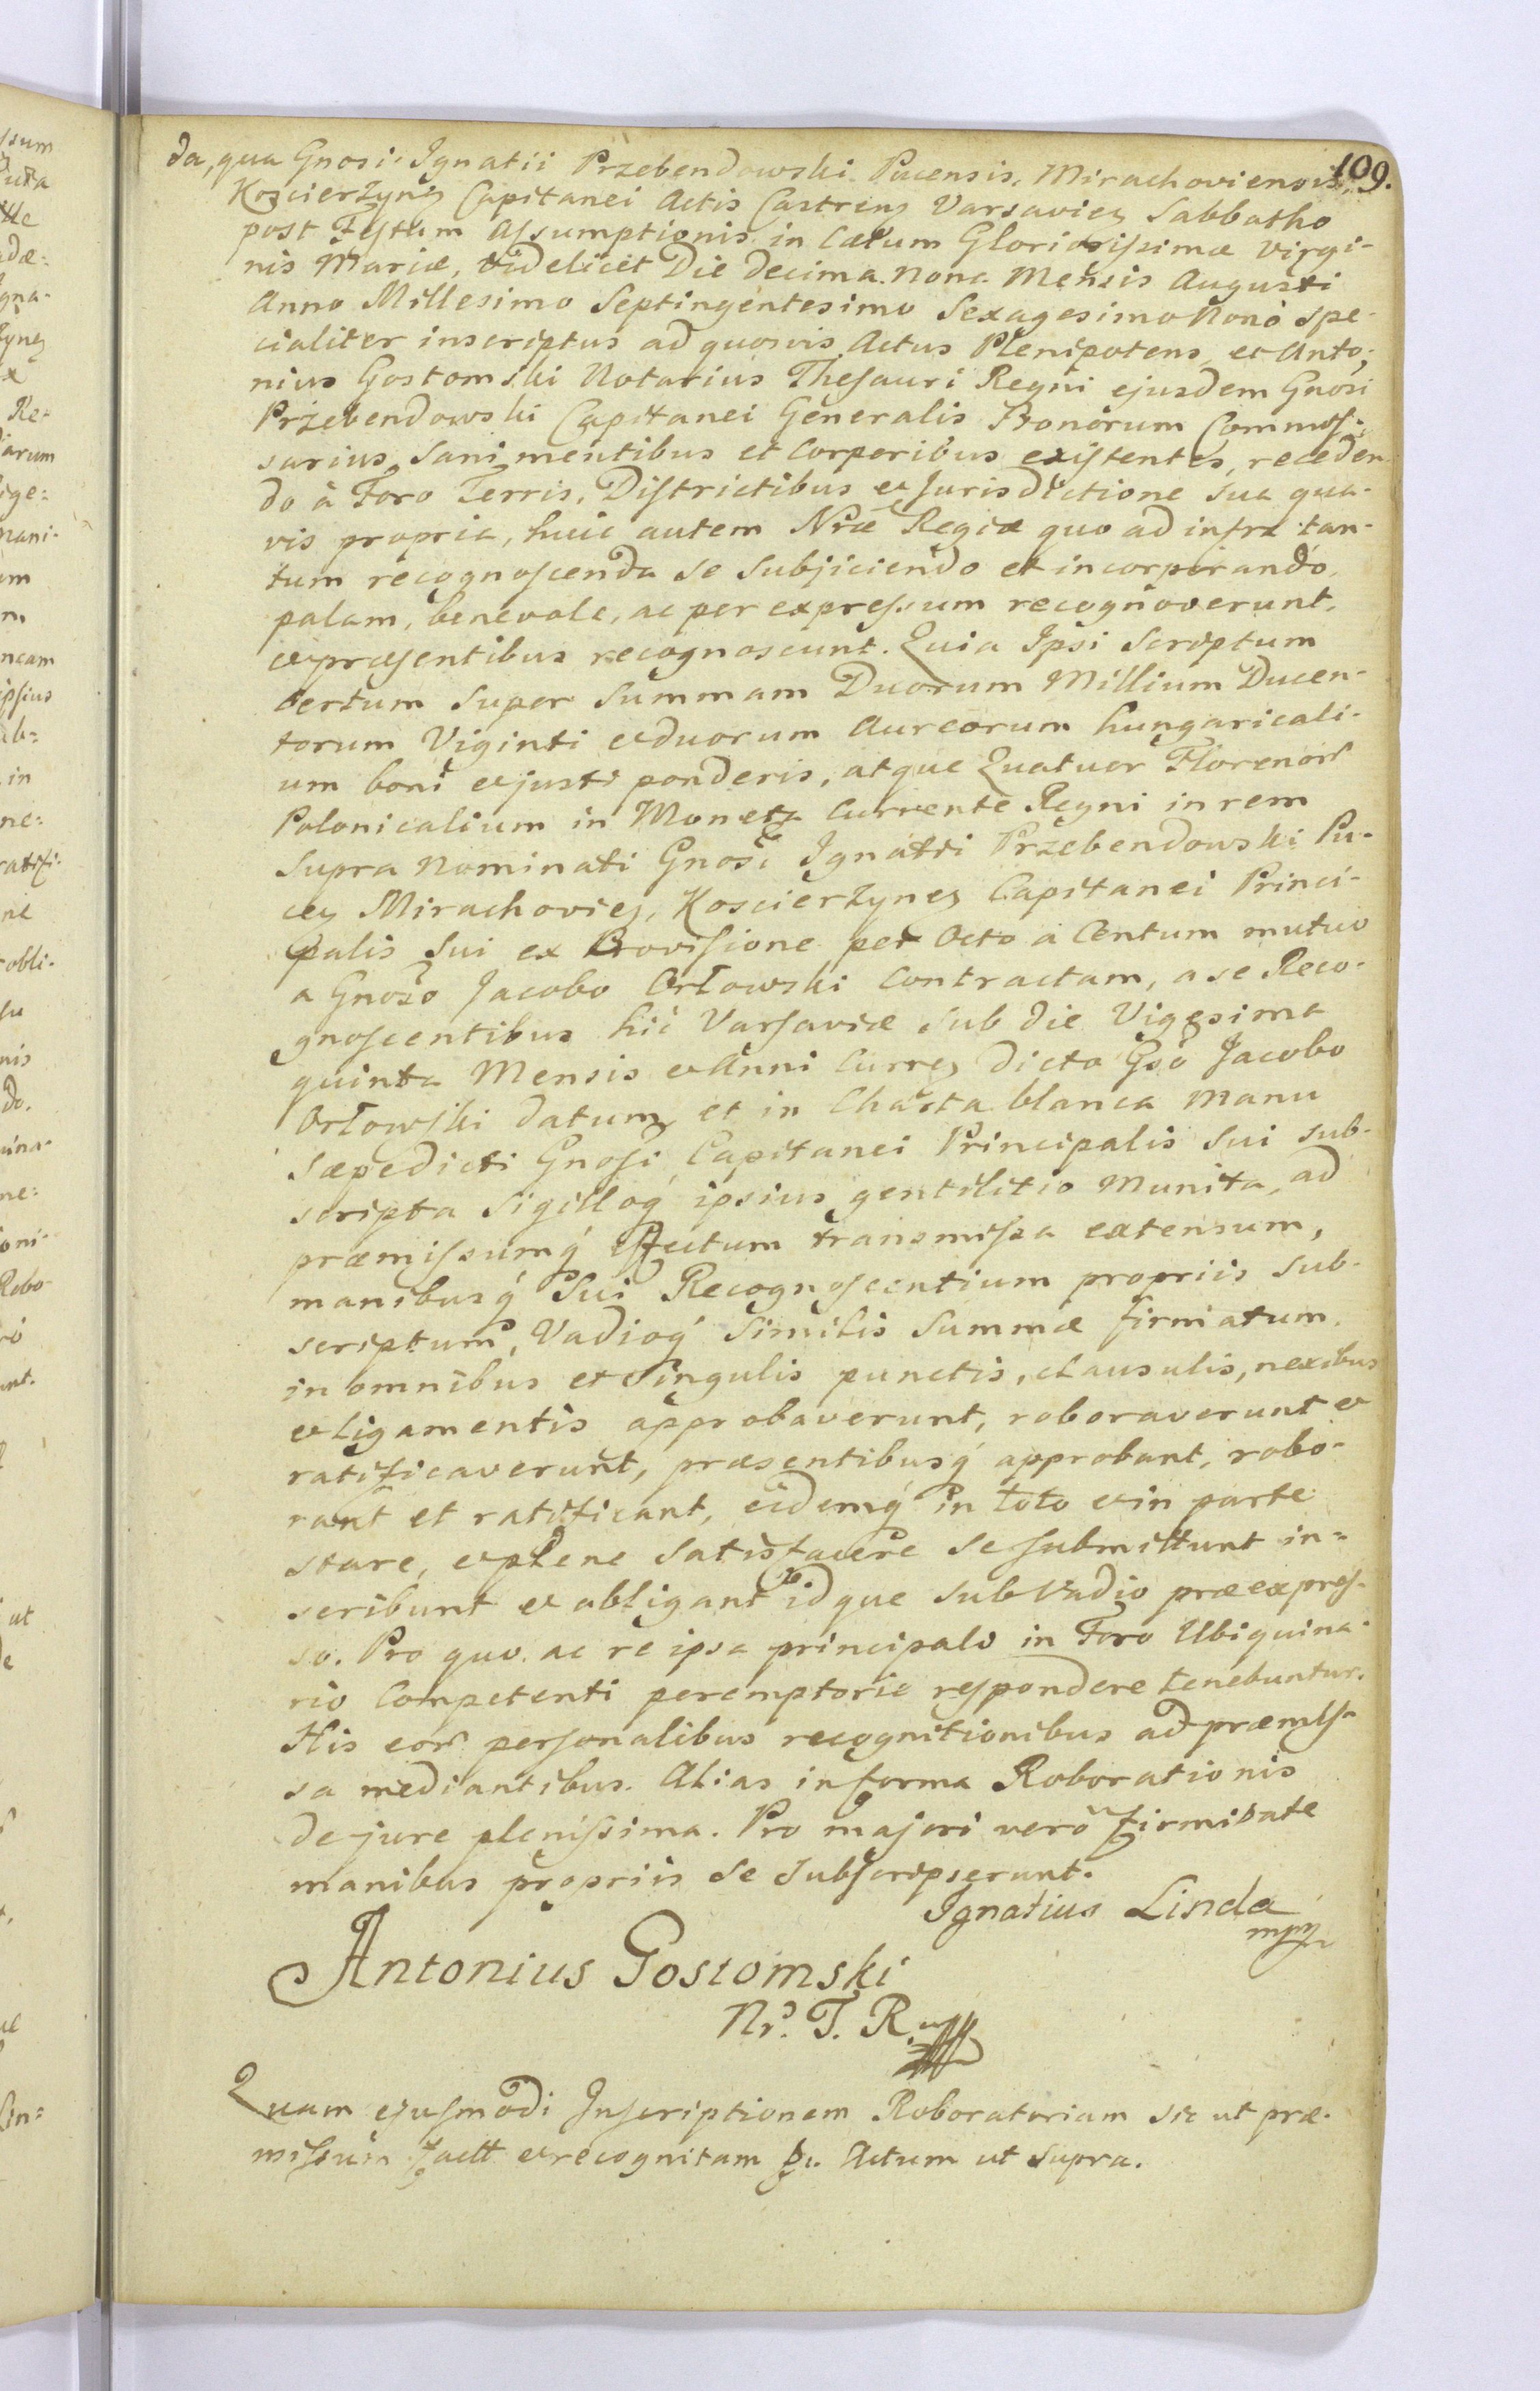 109.
da, qua Gnosi Ignatii Przebendowski Pucensis, Mirachoviensis,
Koscierzynen Capitanei Actis Castren Varsavien Sabbatho
post Festum Assumptionis in Cælum Gloriosissimæ Virgi-
nis Mariæ, videlicet Die decima nona Mensis Augusti
Anno Millesimo Septingentesimo Sexagesimo Nono spe-
cialiter inscriptus ad quosvis Actus Plenipotens, et Anto-
nius Gostomski Notarius Thesauri Regni ejusdem Gnosi
Przebendowski Capitanei Generalis Bonorum Commis-
sarius, Sani mentibus et Corporibus existentes, receden-
do à Foro Terris, Districtibus et Jurisdictione sua qua-
vis propria, huic autem Nræ Regiæ quo ad infra tan-
tum recognoscenda se Subjiciendo et incorporando,
palam, benevole, ac per expressum recognoverunt,
et præsentibus recognoscunt. Quia Ipsi Scriptum
certum super Summam Duorum Millium Ducen-
torum Viginti et duorum Aureorum hungaricali-
um boni et justi ponderis, atque Quatuor Florenor
Polonicalium in Moneta Currente Regni in rem
Supra Nominati Gnosi Ignatii Przebendowski Pu-
cen Mirachovien, Koscierzynen Capitanei Princi-
palis Sui ex Provisione per Octo a Centum mutuo
a Gnoso Jacobo Orłowski Contractam, a se Reco-
gnoscentibus hic Varsaviæ sub die Vigesima
quinta Mensis et Anni Curren dicto Gso Jacobo
Orłowski datum, et in Charta blanca manu
Sæpedicti Gnosi Capitanei Principalis Sui sub-
scripta Sigilloq ipsius gentilitio Munita, ad
præmissumq effectum transmissa extensum,
manibusq Sui Recognoscentium propriis Sub-
scriptum, Vadioq Similis Summæ firmatum.
in omnibus et Singulis punctis, clausulis, nexibus
et ligamentis approbaverunt, roboraverunt et
ratificaverunt, præsentibusq approbant, robo-
rant et ratificant, eidemq in toto et in parte
stare, et plene Satisfacere se submittunt in-
scribunt et obligant idque sub Vadio præexpres-
so. Pro quo ac re ipsa principali in Foro Ubiquina-
rio Competenti peremptorie respondere tenebuntur.
His eor personalibus recognitionibus ad præmis-
sa mediantibus. Alias in forma Roborationis
de jure plenissima. Pro majori vero firmitate
manibus propriis se Subscripserunt.
Ignatius Linda
mpp
Antonius Gostomski
Nr. T. R. mpp
Quam ejusmodi Inscriptionem Roboratoriam sic ut præ-
missum factt et recognitam Actum ut Supra.